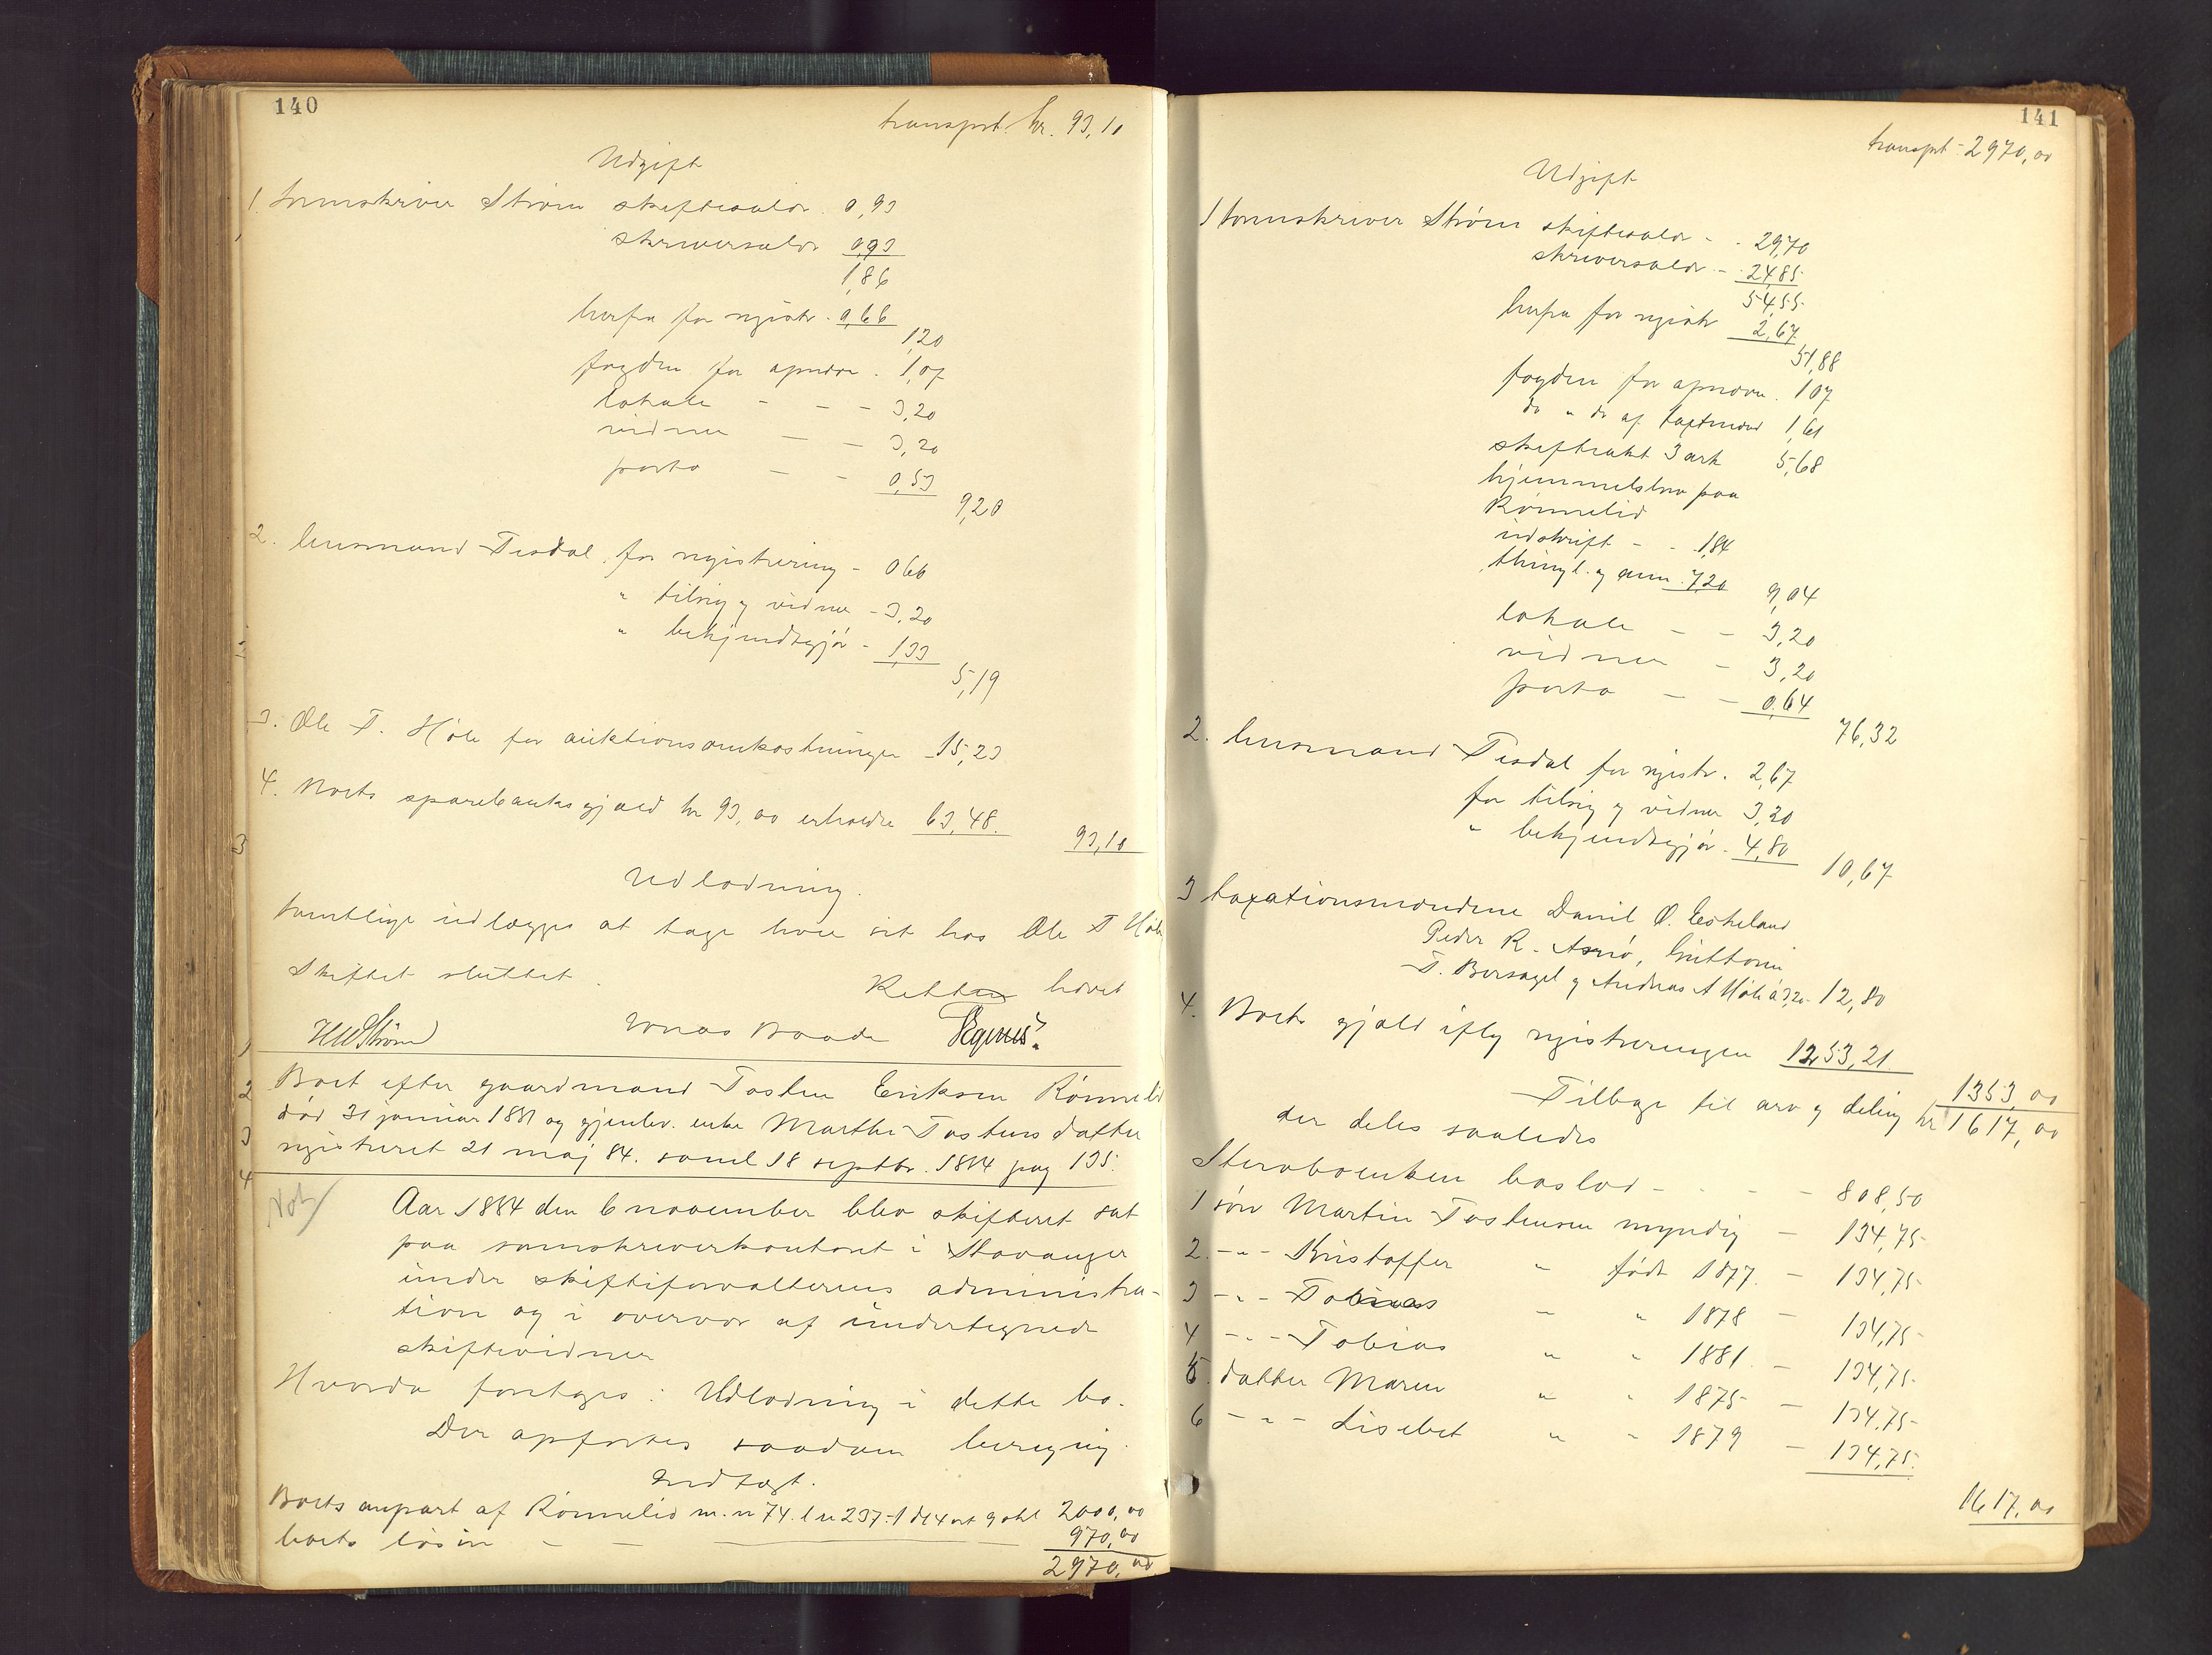 140
transport kr. 93,10
Udgift
1. Sorenskriver Strøm skiftesalær. 0,93
skriversalær 0,93
1,86
herfra for registr. 0,66
1,20
fogden for opnævn. 1,07
lokale - - - 3,20
vidner - - 3,20
porto - - 0,53
9,20
2. lensmand Tisdal for registrering - 0 66
" tilsig. og vidner - 3,20
" bekjendtgjør - 1,33
5,19
3. Ole T. Høle for auktionsomkostninger 15,23
4. Boets sparebanksgjæld kr 93,00 erholder 63,48.
93,10
Udlodning.
Samtlige udlægges at tage hver sit hos Ole T Høle
Skiftet sluttet.
Retten hævet
HW Strøm Jonas Baade
Boet efter gaardmand Tosten Eriksen Rönnelid
död 31 januar 1881 og gjenlev. enke Marthe Tostensdatter
registreret 21 maj 84. saml 18 septbr. 1884 pag 135.
Not
Aar 1884 den 6 november blev skifteret sat
paa sorenskriverkontoret i Stavanger
under skifteforvalterens administra-
tion og i overvær af undertegnede
skiftevidner
Hvorda foretages: Udlodning i dette bo.
Der opførtes saadan beregnig.
Indtægt.
Boets anpart af Rönnelid m. n 74. l n 237. 1 d 4 ort 9 skl 2000,00
boets lösöre - - 970,00
2970,00
141
transprt - 2970,00
Udgift
1 Sorenskriver Ström skiftesalær - - 29,70
skriversalær - - 24,85
54,55
herfra for registr 2,67
51,88
fogden for opnævn. 1 07
do " do af taxtmænd 1,61
skifteakt 3 ark 5,68
hjemmelsbrev paa
Rönnelid
udskrift - - 1,84
thingl. og ann. 7,20
9,04
lokale - - 3,20
vidner - 3,20
porto - - 0,64
76,32
2. lensmand Tisdal for registr. 2,67
for tilsig. og vidner 3,20
" bekjendtgjør - 4,80
10,67
3 taxationsmændene Daniel O. Eskeland
Peder R. Asviö, Guttorm
T. Bersagel og Andreas A Høle á 3,20 - 12,80
4. Boets gjæld iflg registreringen 1253,21
1353,00
Tilbage til arv og deling kr 1617,00
der deles saaledes
Stervboenken boslod - - - - 808,50
1 sön Martin Tostensen myndig - 134,75
2. - " - Kristoffer " födt 1877. - 134,75
3 - " - Tobias " " 1878 - 134,75
4 - " - Tobias " " 1881. - 134,75
5. datter Maren " " 1875 - 134,75
6 - " - Lisebet " " 1879 - 134,75
1617,00